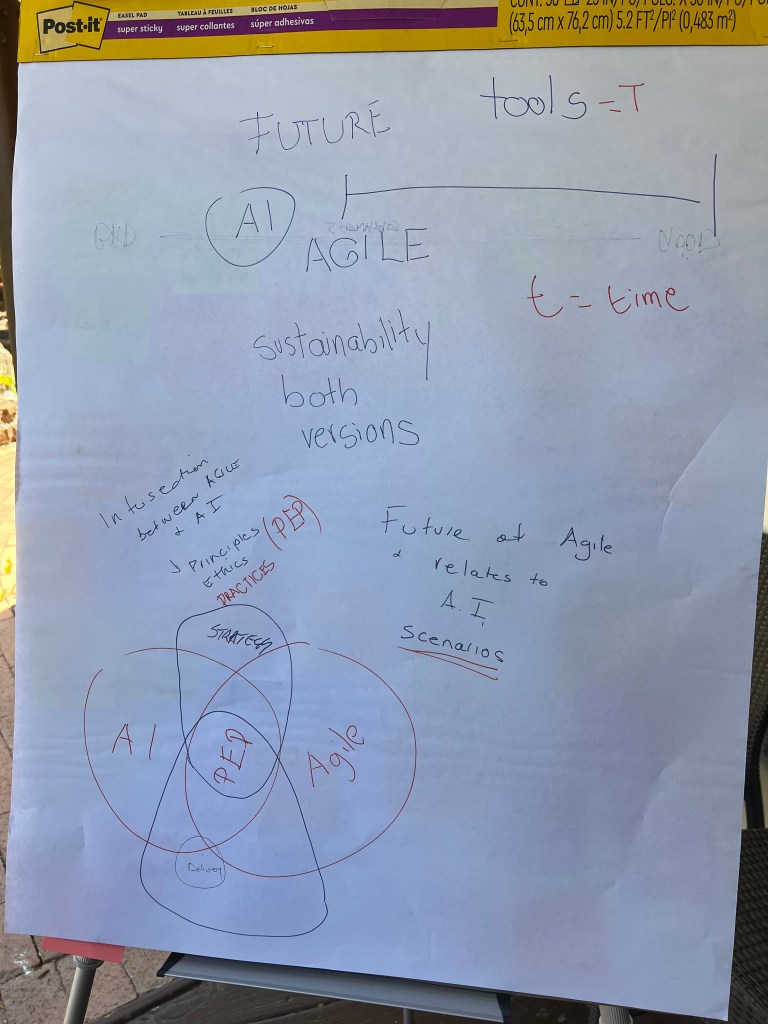 Post-it
EASEL PAD
super sticky
TABLEAU À FEUILLES
super collantes
BLOC DE HOJAS
súper adhesivas
(63,5 cm x 76,2 cm) 5.2 FT²/PI² (0,483 m²)
FUTURE
tools = T
AI
AGILE
t = time
sustainability
both
versions
Intersection
between AGILE
+ AI
Principles (PEP)
Ethics
PRACTICES
Future of Agile
relates to
A.I.
Scenarios
STRATEGY
AI
PEP
Agile
Delivery